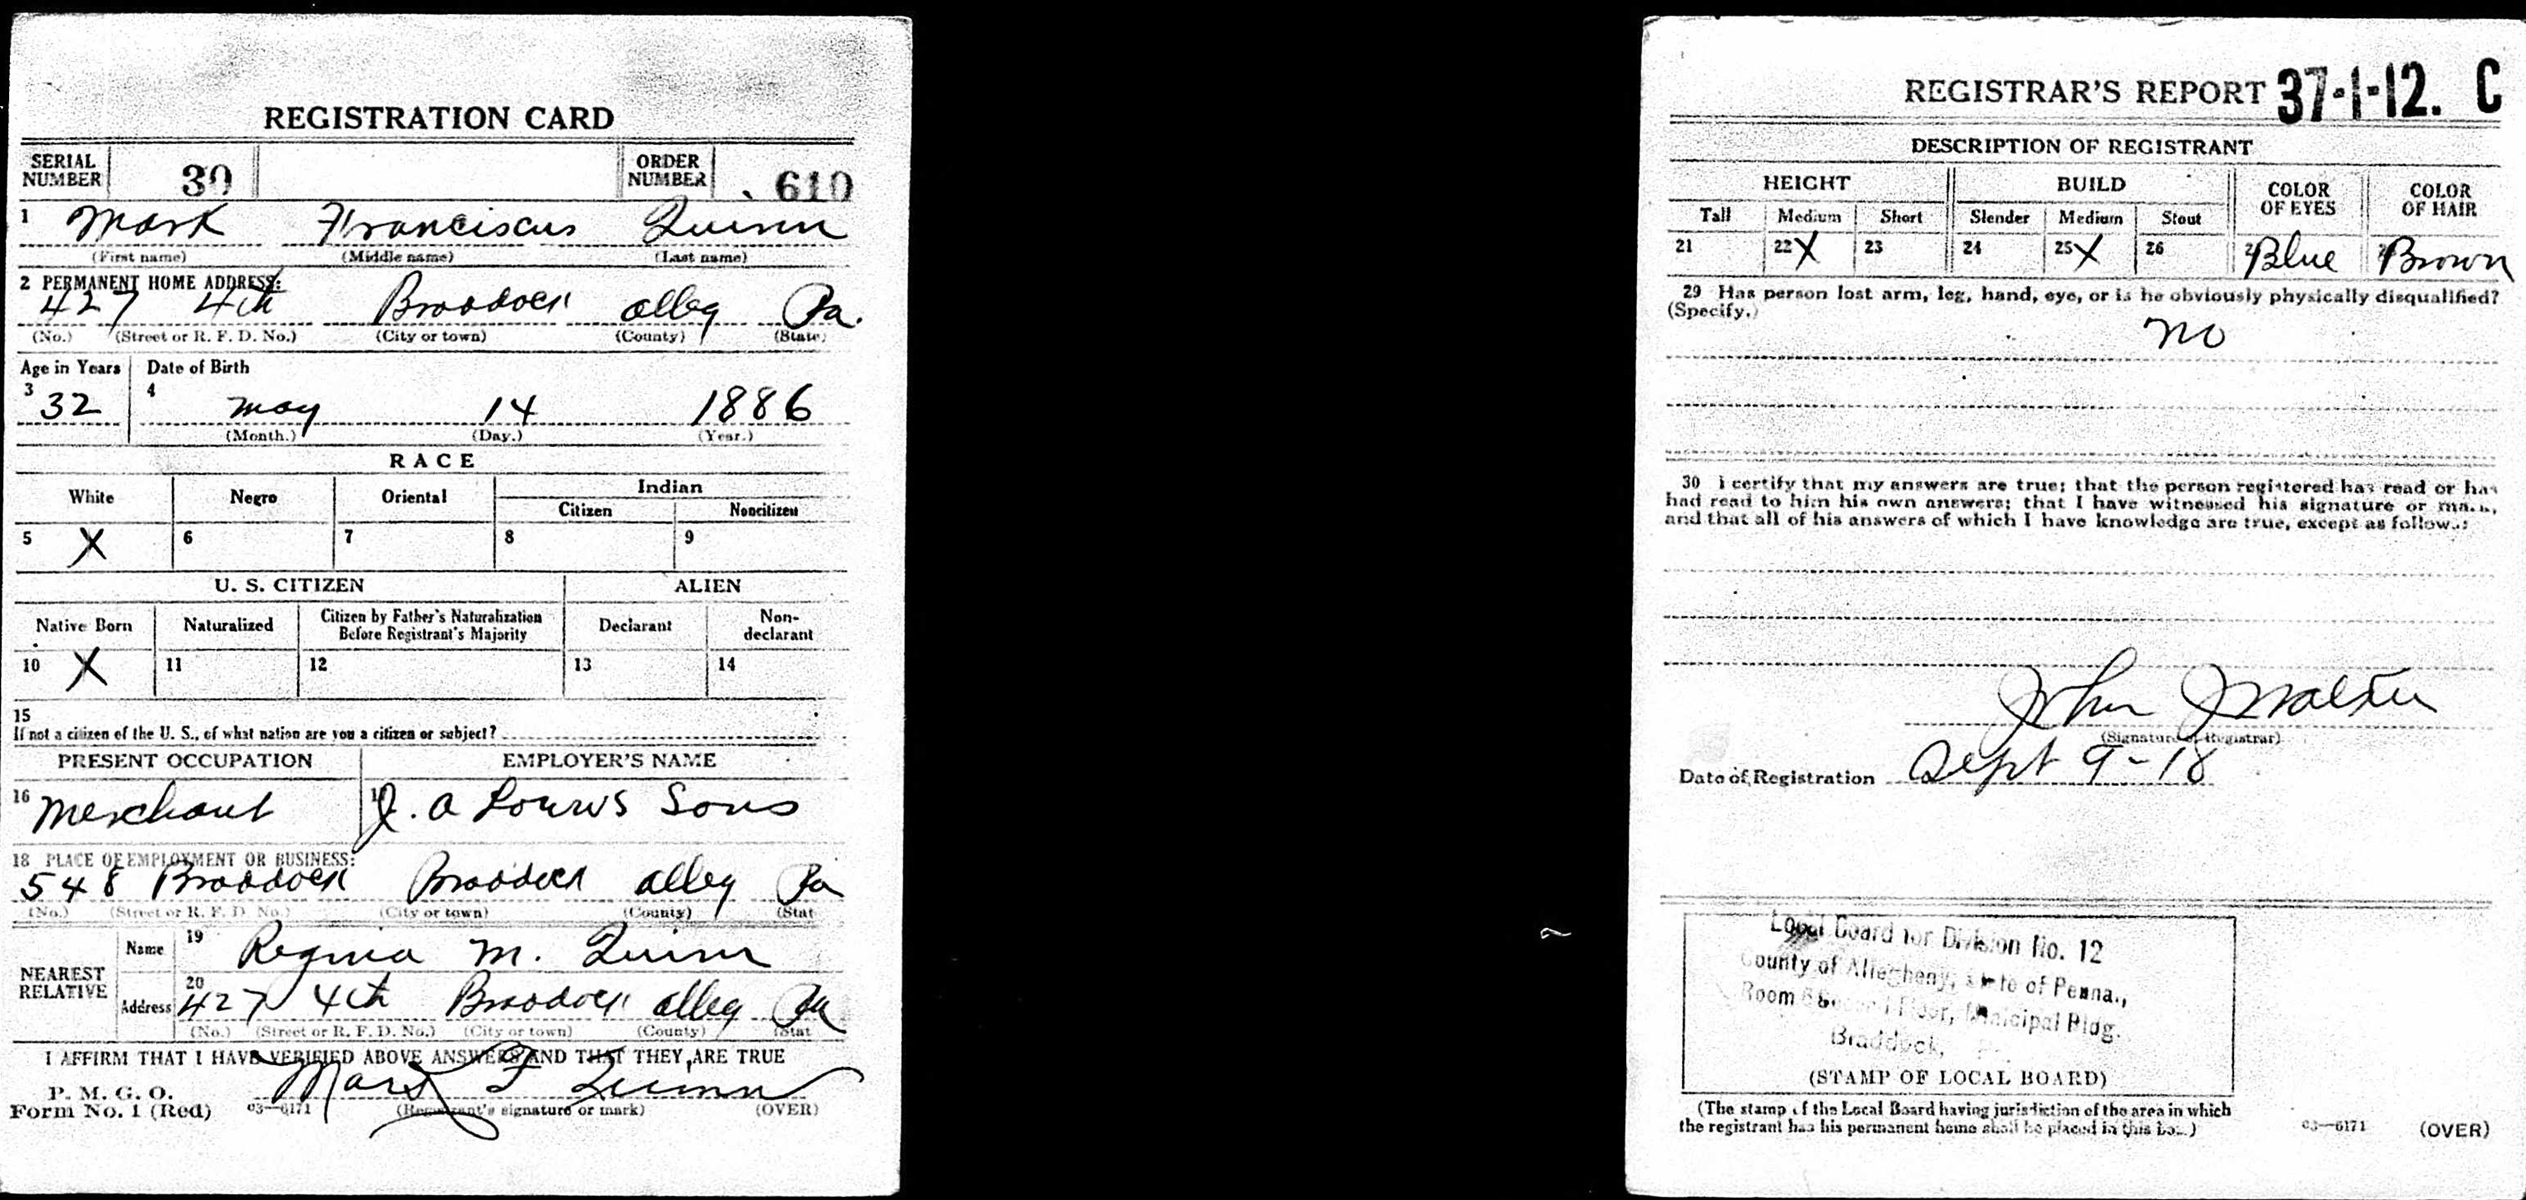 REGISTRATION CARD
SERIAL NUMBER 39 ORDER NUMBER 610
1 Mark Franciscus Quinn
(First name) (Middle name) (Last name)
2 PERMANENT HOME ADDRESS:
427 4th Braddock Alleg Pa.
(No.) (Street or R. F. D. No.) (City or town) (County) (State)
Age in Years Date of Birth
3 32 4 May 14 1886
(Month.) (Day.) (Year.)
RACE
White Negro Oriental Indian
Citizen Noncitizen
5 X 6 7 8 9
U. S. CITIZEN ALIEN
Native Born Naturalized Citizen by Father's Naturalization Before Registrant's Majority Declarant Non-declarant
10 X 11 12 13 14
15
If not a citizen of the U. S., of what nation are you a citizen or subject?
PRESENT OCCUPATION EMPLOYER'S NAME
16 Merchant J. A Sons
18 PLACE OF EMPLOYMENT OR BUSINESS:
548 Braddock Braddock Alleg Pa
(No.) (Street or R. F. D. No.) (City or town) (County) (Stat
NEAREST RELATIVE
Name 19 Regina M. Quinn
Address 20 427 4th Braddock Alleg Pa
(No.) (Street or R. F. D. No.) (City or town) (County) (Stat
I AFFIRM THAT I HAVE VERIFIED ABOVE ANSWERS AND THAT THEY ARE TRUE
P. M. G. O.
Form No. 1 (Red) 03—6171 Mark F Quinn
(Registrant's signature or mark) (OVER)
REGISTRAR'S REPORT 37-1-12. C
DESCRIPTION OF REGISTRANT
HEIGHT BUILD COLOR OF EYES COLOR OF HAIR
Tall Medium Short Slender Medium Stout
21 22 X 23 24 25 X 26 Blue Brown
29 Has person lost arm, leg, hand, eye, or is he obviously physically disqualified?
(Specify.)
No
30 I certify that my answers are true; that the person registered has read or has
had read to him his own answers; that I have witnessed his signature or mark,
and that all of his answers of which I have knowledge are true, except as follows:
John J Walter
(Signature of Registrar)
Date of Registration Sept 9-18
Local Board for Division No. 12
County of Allegheny, State of Penna.,
Room Second Floor, Municipal Bldg.
Braddock,
(STAMP OF LOCAL BOARD)
(The stamp of the Local Board having jurisdiction of the area in which
the registrant has his permanent home shall be placed in this box.)
03—6171 (OVER)